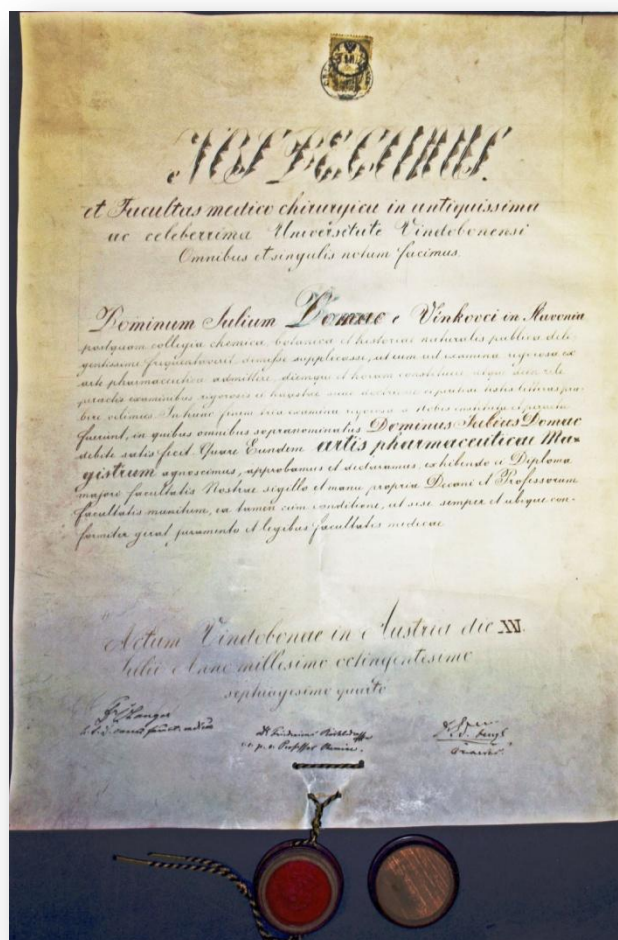 NOS DECANUS
et Facultas medico chirurgica in antiquissima
ac celeberrima Universitate Vindobonensi
Omnibus et singulis notum facimus,
Dominum Julium Domac e Vinkovci in Slavonia
postquam collegia chemica, botanica et historiae naturalis publica dili-
gentissime frequentaverit, demisse supplicasse, ut eum ad examina rigorosa ex
arte pharmaceutica admittere, diemque et horam constituere
peractis examinibus rigorosis testes litteras prae-
bere velimus. In hunc finem examina rigorosa a Nobis instituta et peracta
fuerunt, in quibus omnibus supranominatus Dominus Julius Domac
debite satis fecit. Quare Eundem artis pharmaceuticae Ma-
gistrum agnoscimus, approbamus et declaramus, exhibendo ei Diploma
majore facultatis Nostrae sigillo et manu propria Decani et Professorum
facultatis munitum, ea tamen cum conditione, ut sese semper et ubique con-
formiter gerat juramento et legibus facultatis medicae
Actum Vindobonae in Austria die XV.
Julii Anno millesimo octingentesimo
septuagesimo quarto
Langer